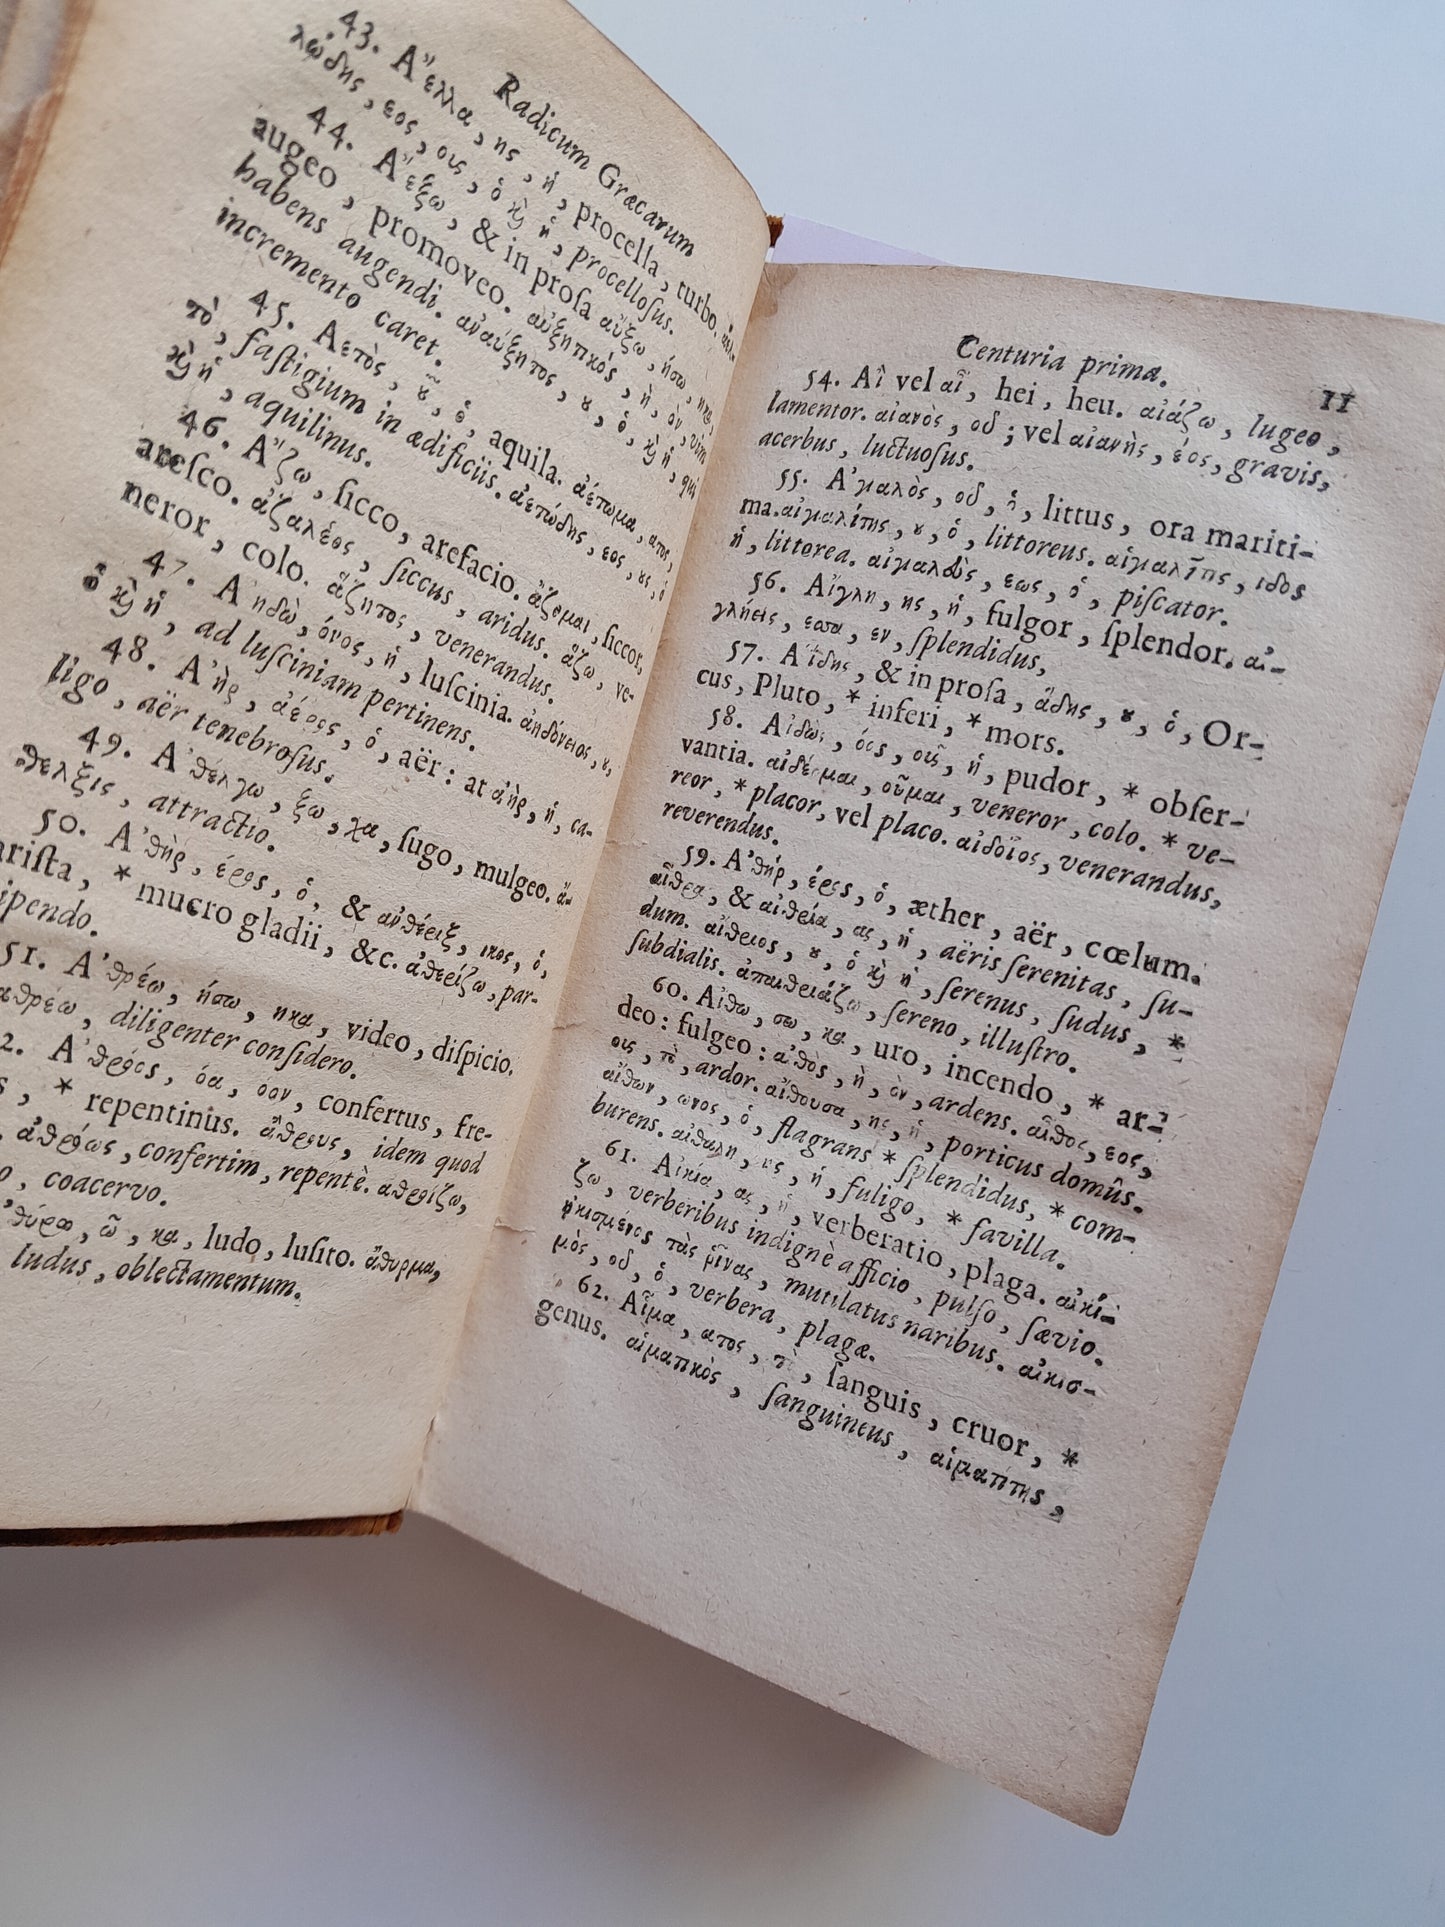 Radicum Græcarum
43. Αʺελλα, ης, ἡ, procella, turbo. ἀελ-
λώδης, εος, ους, ὁ κὴ ἡ, procelloſus.
44. Αʺεξω, & in proſa αὔξω, ήσω, ηκα,
augeo, promoveo. αὐξητικὸς, ὴ, ὸν, vim
habens augendi. ἀναύξητος, ου, ὁ, κὴ ἡ, qui
incremento caret.
45. Αετὸς, οῦ, ὁ, aquila. ἀέτωμα, ατος,
τὸ, faſtigium in ædificiis. ἀετώδης, εος, ους, ὁ
κὴ ἡ, aquilinus.
46. Αʺζω, ſicco, arefacio. ἄζομαι, ſiccor,
areſco. ἀζαλέος, ſiccus, aridus. ἄζω, ve-
neror, colo. ἄζητος, venerandus.
47. Αʼηδὼ, όνος, ἡ, luſcinia. ἀηδόνειος, ου,
ὁ κὴ ἡ, ad luſciniam pertinens.
48. Αʼὴρ, ἀέρος, ὁ, aër: at ἀὴρ, ἡ, ca-
ligo, aër tenebroſus.
49. Αʼθέλγω, ξω, χα, ſugo, mulgeo. ἄ-
θελξις, attractio.
50. Αʼθὴρ, έρος, ὁ, & ἀνθέριξ, ικος, ὁ,
ariſta, * mucro gladii, &c. ἀθερίζω, par-
ipendo.
51. Αʼθρέω, ήσω, ηκα, video, diſpicio.
αθρέω, diligenter conſidero.
2. Αʼθρόος, όα, οον, confertus, fre-
s, * repentinus. ἄθρους, idem quod
ἀθρόως, confertim, repentè. ἀθροίζω,
o, coacervo.
ʼθύρω, ῶ, κα, ludo, luſito. ἄθυρμα,
ludus, oblectamentum.
Centuria prima. 11
54. Αἲ vel αἶ, hei, heu. αἰάζω, lugeo,
lamentor. αἰανὸς, οῦ; vel αἰανὴς, έος, gravis,
acerbus, luctuoſus.
55. Αʼιγιαλὸς, οῦ, ἡ, littus, ora mariti-
ma. αἰγιαλίτης, ου, ὁ, littoreus. αἰγιαλῖτις, ιδος
ἡ, littorea. αἰγιαλεὺς, εως, ὁ, piſcator.
56. Αἴγλη, ης, ἡ, fulgor, ſplendor. αἰ-
γλήεις, εσσα, εν, ſplendidus,
57. Αʼΐδης, & in proſa, ᾅδης, ου, ὁ, Or-
cus, Pluto, * inferi, * mors.
58. Αἰδὼς, όος, οῦς, ἡ, pudor, * obſer-
vantia. αἰδέομαι, οῦμαι, veneror, colo. * ve-
reor, * placor, vel placo. αἰδοῖος, venerandus,
reverendus.
59. Αʼιθήρ, έρος, ὁ, æther, aër, cœlum.
αἶθρα, & αἰθρία, ας, ἡ, aëris ſerenitas, ſu-
dum. αἴθριος, ου, ὁ κὴ ἡ, ſerenus, ſudus, *
ſubdialis. ἀπαιθριάζω, ſereno, illuſtro.
60. Αἴθω, σω, κα, uro, incendo, * ar-
deo: fulgeo: αἰθὸς, ὴ, ὸν, ardens. αἶθος, εος,
ους, τὸ, ardor. αἴθουσα, ης, ἡ, porticus domûs.
αἴθων, ωνος, ὁ, flagrans * ſplendidus, * com-
burens. αἰθάλη, ης, ἡ, fuligo, * favilla.
61. Αἰκία, ας, ἡ, verberatio, plaga. αἰκί-
ζω, verberibus indignè afficio, pulſo, ſævio.
ᾐκισμένος τὰς ῥῖνας, mutilatus naribus. αἰκισ-
μὸς, οῦ, ὁ, verbera, plagæ.
62. Αἷμα, ατος, τὸ, ſanguis, cruor, *
genus. αἱματικὸς, ſanguineus, αἱματίτης,